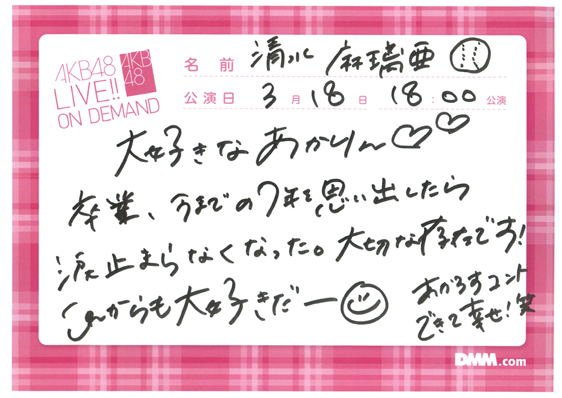 AKB48
LIVE!!
ON DEMAND
AKB
48
名前 清水 麻璃亜
公演日 3月18日 18:00公演
大好きなあかりん♡♡
卒業、今までの7年を思い出したら
涙止まらなくなった。大切な存在です!
これからも大好きだー
あかるすコント
できて幸せ!笑
DMM.com